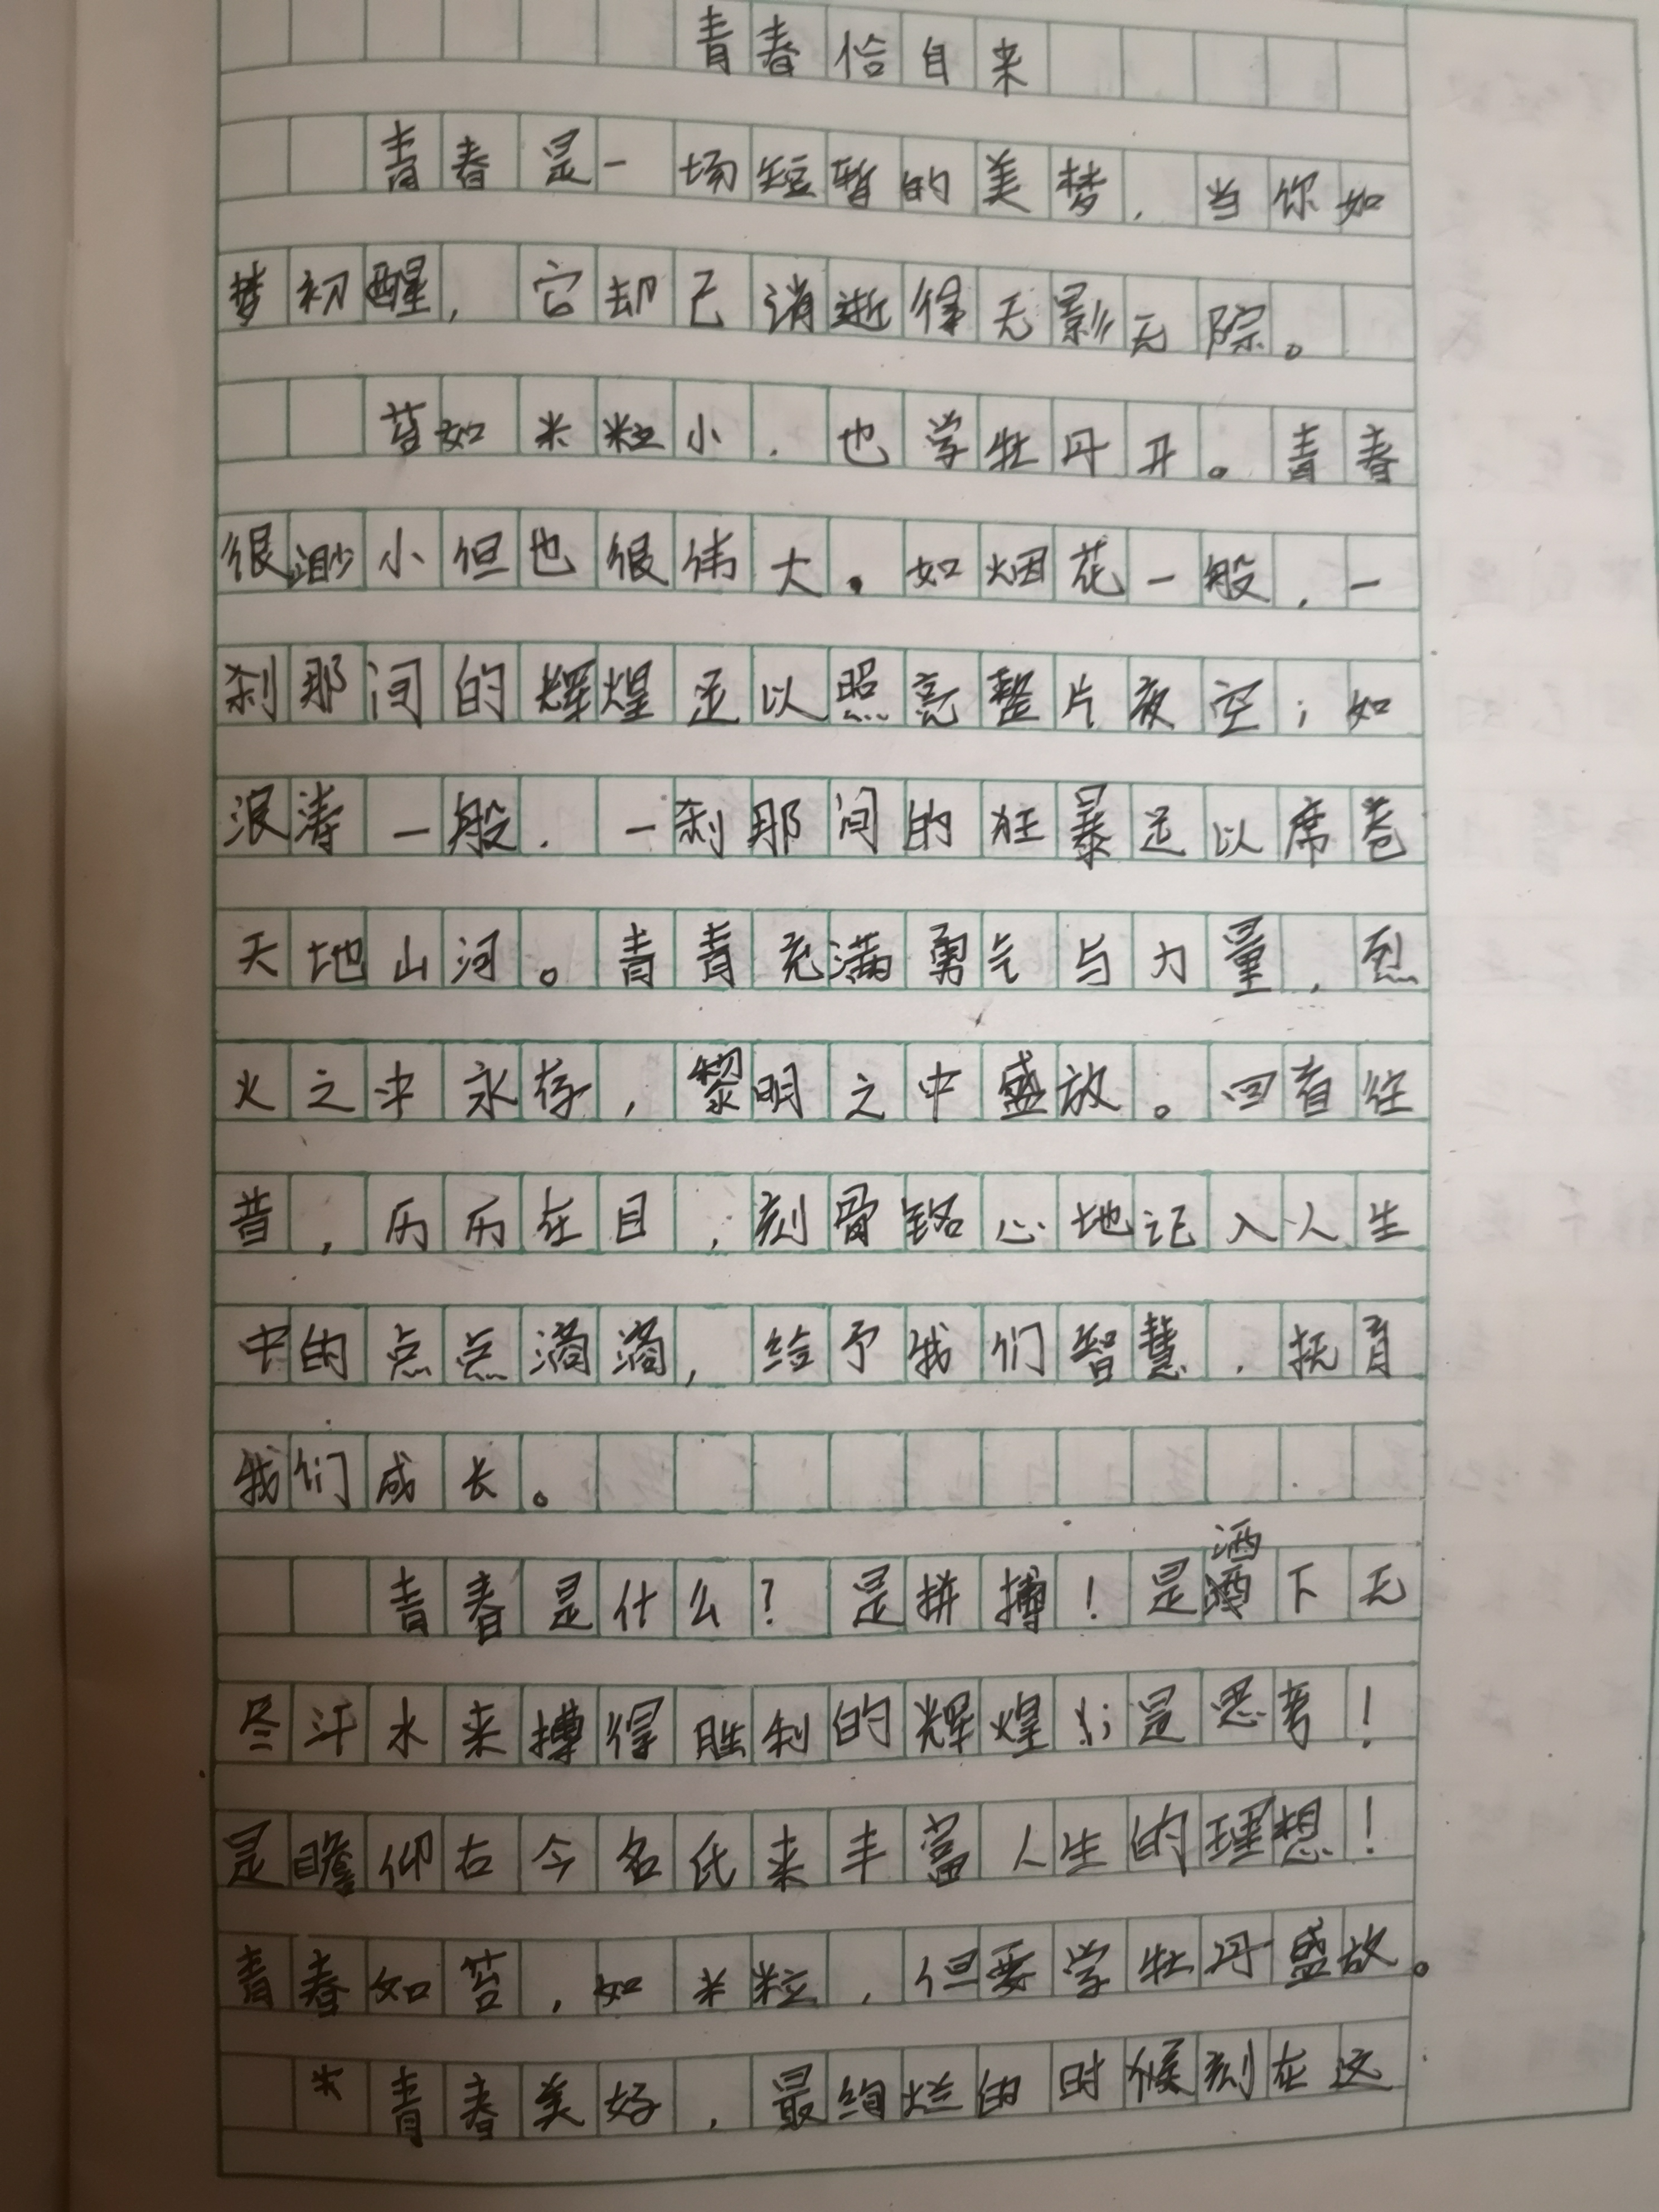 青春恰自来
青春是一场短暂的美梦，当你如
梦初醒，它却已消逝得无影无踪。
苔如米粒小，也学牡丹开。青春
很渺小但也很伟大。如烟花一般，一
刹那间的辉煌足以照亮整片夜空；如
浪涛一般，一刹那间的狂暴足以席卷
天地山河。青青充满勇气与力量，烈
火之中永存，黎明之中盛放。回首往
昔，历历在目，刻骨铭心地记入人生
中的点点滴滴，给予我们智慧，抚育
我们成长。
青春是什么？是拼搏！是洒下无
尽汗水来搏得胜利的辉煌！；是思考！
是瞻仰古今名氏来丰富人生的理想！
青春如苔，如米粒，但要学牡丹盛放。
青春美好，最绚烂的时候刻在这